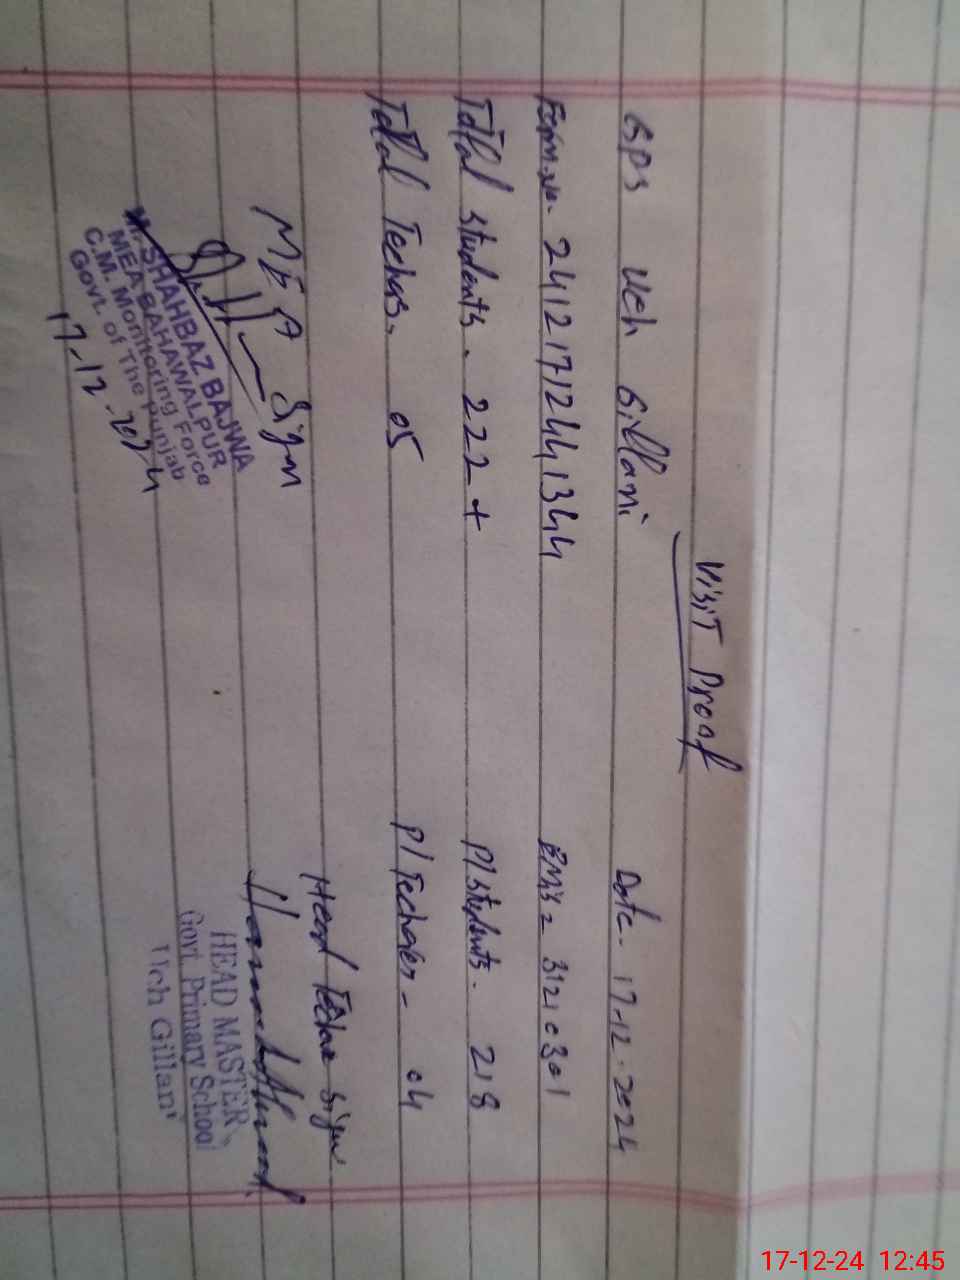 Visit Proof
GPS Uch Gillani Date. 17-12-2024
Form.No. 24121712441344 EMIS 31210301
Total Students. 222+ P/Students. 218
Total Techas. 05 P/Techaer- 04
MEA Sign Head Techar Sign
M. SHAHBAZ BAJWA
MEA BAHAWALPUR
C.M. Monitoring Force
Govt. of The Punjab
17-12-2024
HEAD MASTER
Govt Primary School
Uch Gillani
17-12-24 12:45